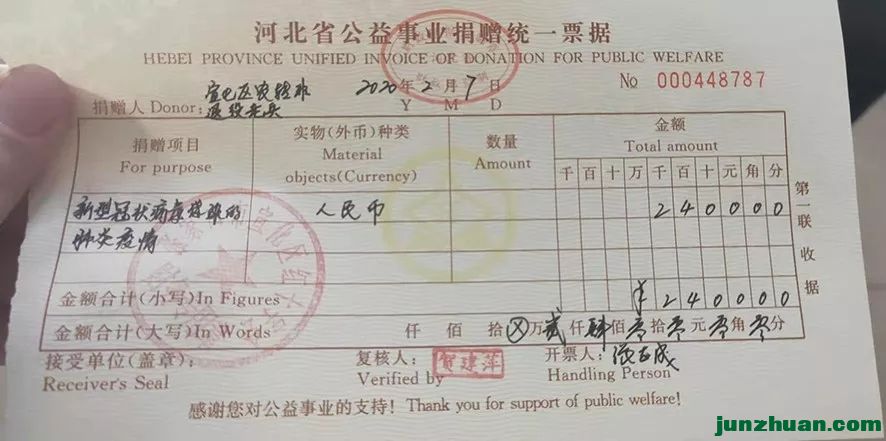 河北省公益事业捐赠统一票据
HEBEI PROVINCE UNIFIED INVOICE OF DONATION FOR PUBLIC WELFARE
2020年2月7日 No 000448787
Y M D
捐赠人 Donor: 宣化区农转非
退役老兵
捐赠项目 实物(外币)种类 数量 金额
For purpose Material Amount Total amount
objects(Currency) 千 百 十 万 千 百 十 元 角 分
新型冠状病毒 人民币 2 4 0 0 0 0
肺炎疫情
金额合计(小写)In Figures ¥ 2 4 0 0 0 0
金额合计(大写)In Words 仟 佰 拾 ⊗万 贰仟 肆佰 零拾 零元 零角 零分
接受单位(盖章): 复核人: 贺建萍 开票人:
Receiver's Seal Verified by Handling Person
感谢您对公益事业的支持! Thank you for support of public welfare!
第一联 收据
宣化区红十字
junzhuan.com